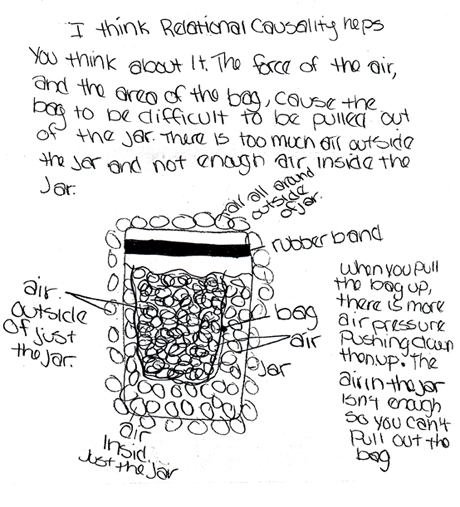 I think Relational Causality heps
You think about It. The force of the air,
and the area of the bag, cause the
bag to be difficult to be pulled out
of the jar. There is too much air outside
the jar and not enough air inside the
Jar.
air all around
outside
of jar.
rubber band
air
outside
of just
the jar.
bag
air
Jar
air
Insid.
Just the jar
when you pull
the bag up,
there is more
air pressure
Pushing down
then up. The
air in the jar
isn't enough
so you can't
Pull out the
bag